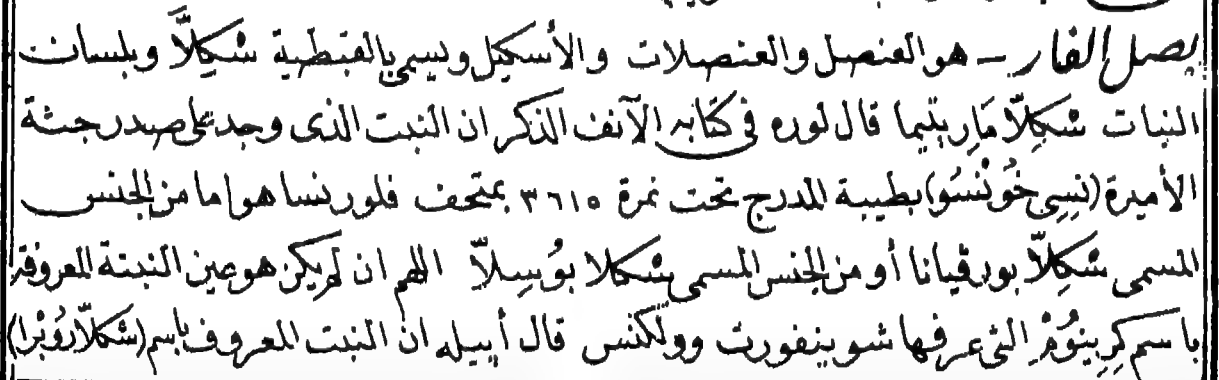 بصل الفار — هو العنصل والعنصلات والأسكيل ويسمى بالقبطية شكِلاَّ وبلسان
النبات شكِلاَّ مَارِيتيما قال لوره فى كتابه الآنف الذكر ان النبت الذى وجد على صدر جثة
الأميرة (نسِى خُونْسُو) بطيبة المدرج تحت نمرة ٣٦١٥ بمتحف فلورنسا هو اما من الجنس
المسمى شكِلاَّ بورقيانا أو من الجنس المسمى شكلا بوُسِلاَّ اللهم ان لم يكن هو عين النبتة المعروفة
باسم كرِينُومْ التى عرفها شوينفورت وولكنس قال أبيله ان النبت المعروف باسم (شكلاَّ رُوبْرا)